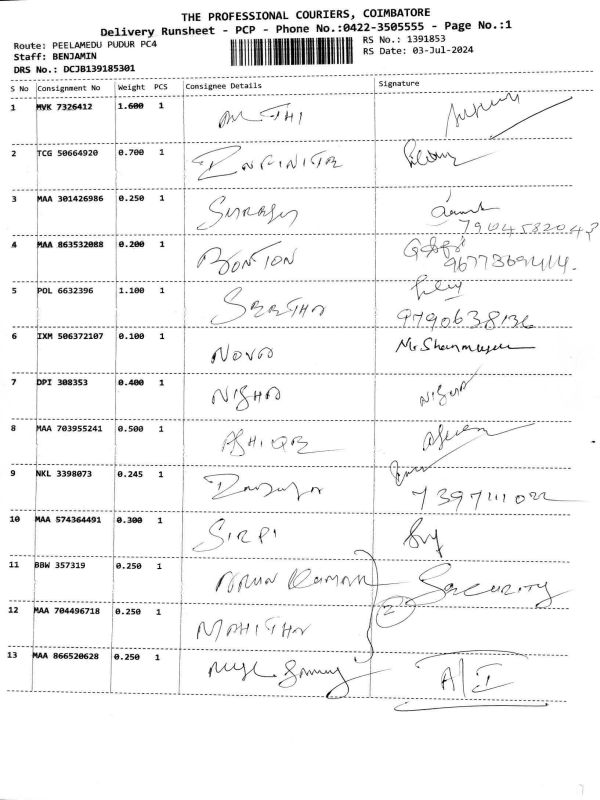 THE PROFESSIONAL COURIERS, COIMBATORE
Delivery Runsheet - PCP - Phone No.:0422-3505555 - Page No.:1
Route: PEELAMEDU PUDUR PC4
RS No.: 1391853
Staff: BENJAMIN
RS Date: 03-Jul-2024
DRS No.: DCJB139185301
S No Consignment No Weight PCS Consignee Details Signature
1 MVK 7326412 1.600 1
2 TCG 50664920 0.700 1 INFINITE
3 MAA 301426986 0.250 1
7904582043
4 MAA 863532088 0.200 1 BONTON
9677369414.
5 POL 6632396 1.100 1
9790638136
6 IXM 506372107 0.100 1 NOVO
7 DPI 308353 0.400 1 NISHA
8 MAA 703955241 0.500 1
9 NKL 3398073 0.245 1
7397111022
10 MAA 574364491 0.300 1 SIRPI
11 BBW 357319 0.250 1 SECURITY
2
12 MAA 704496718 0.250 1 MOHITHA
13 MAA 866520628 0.250 1